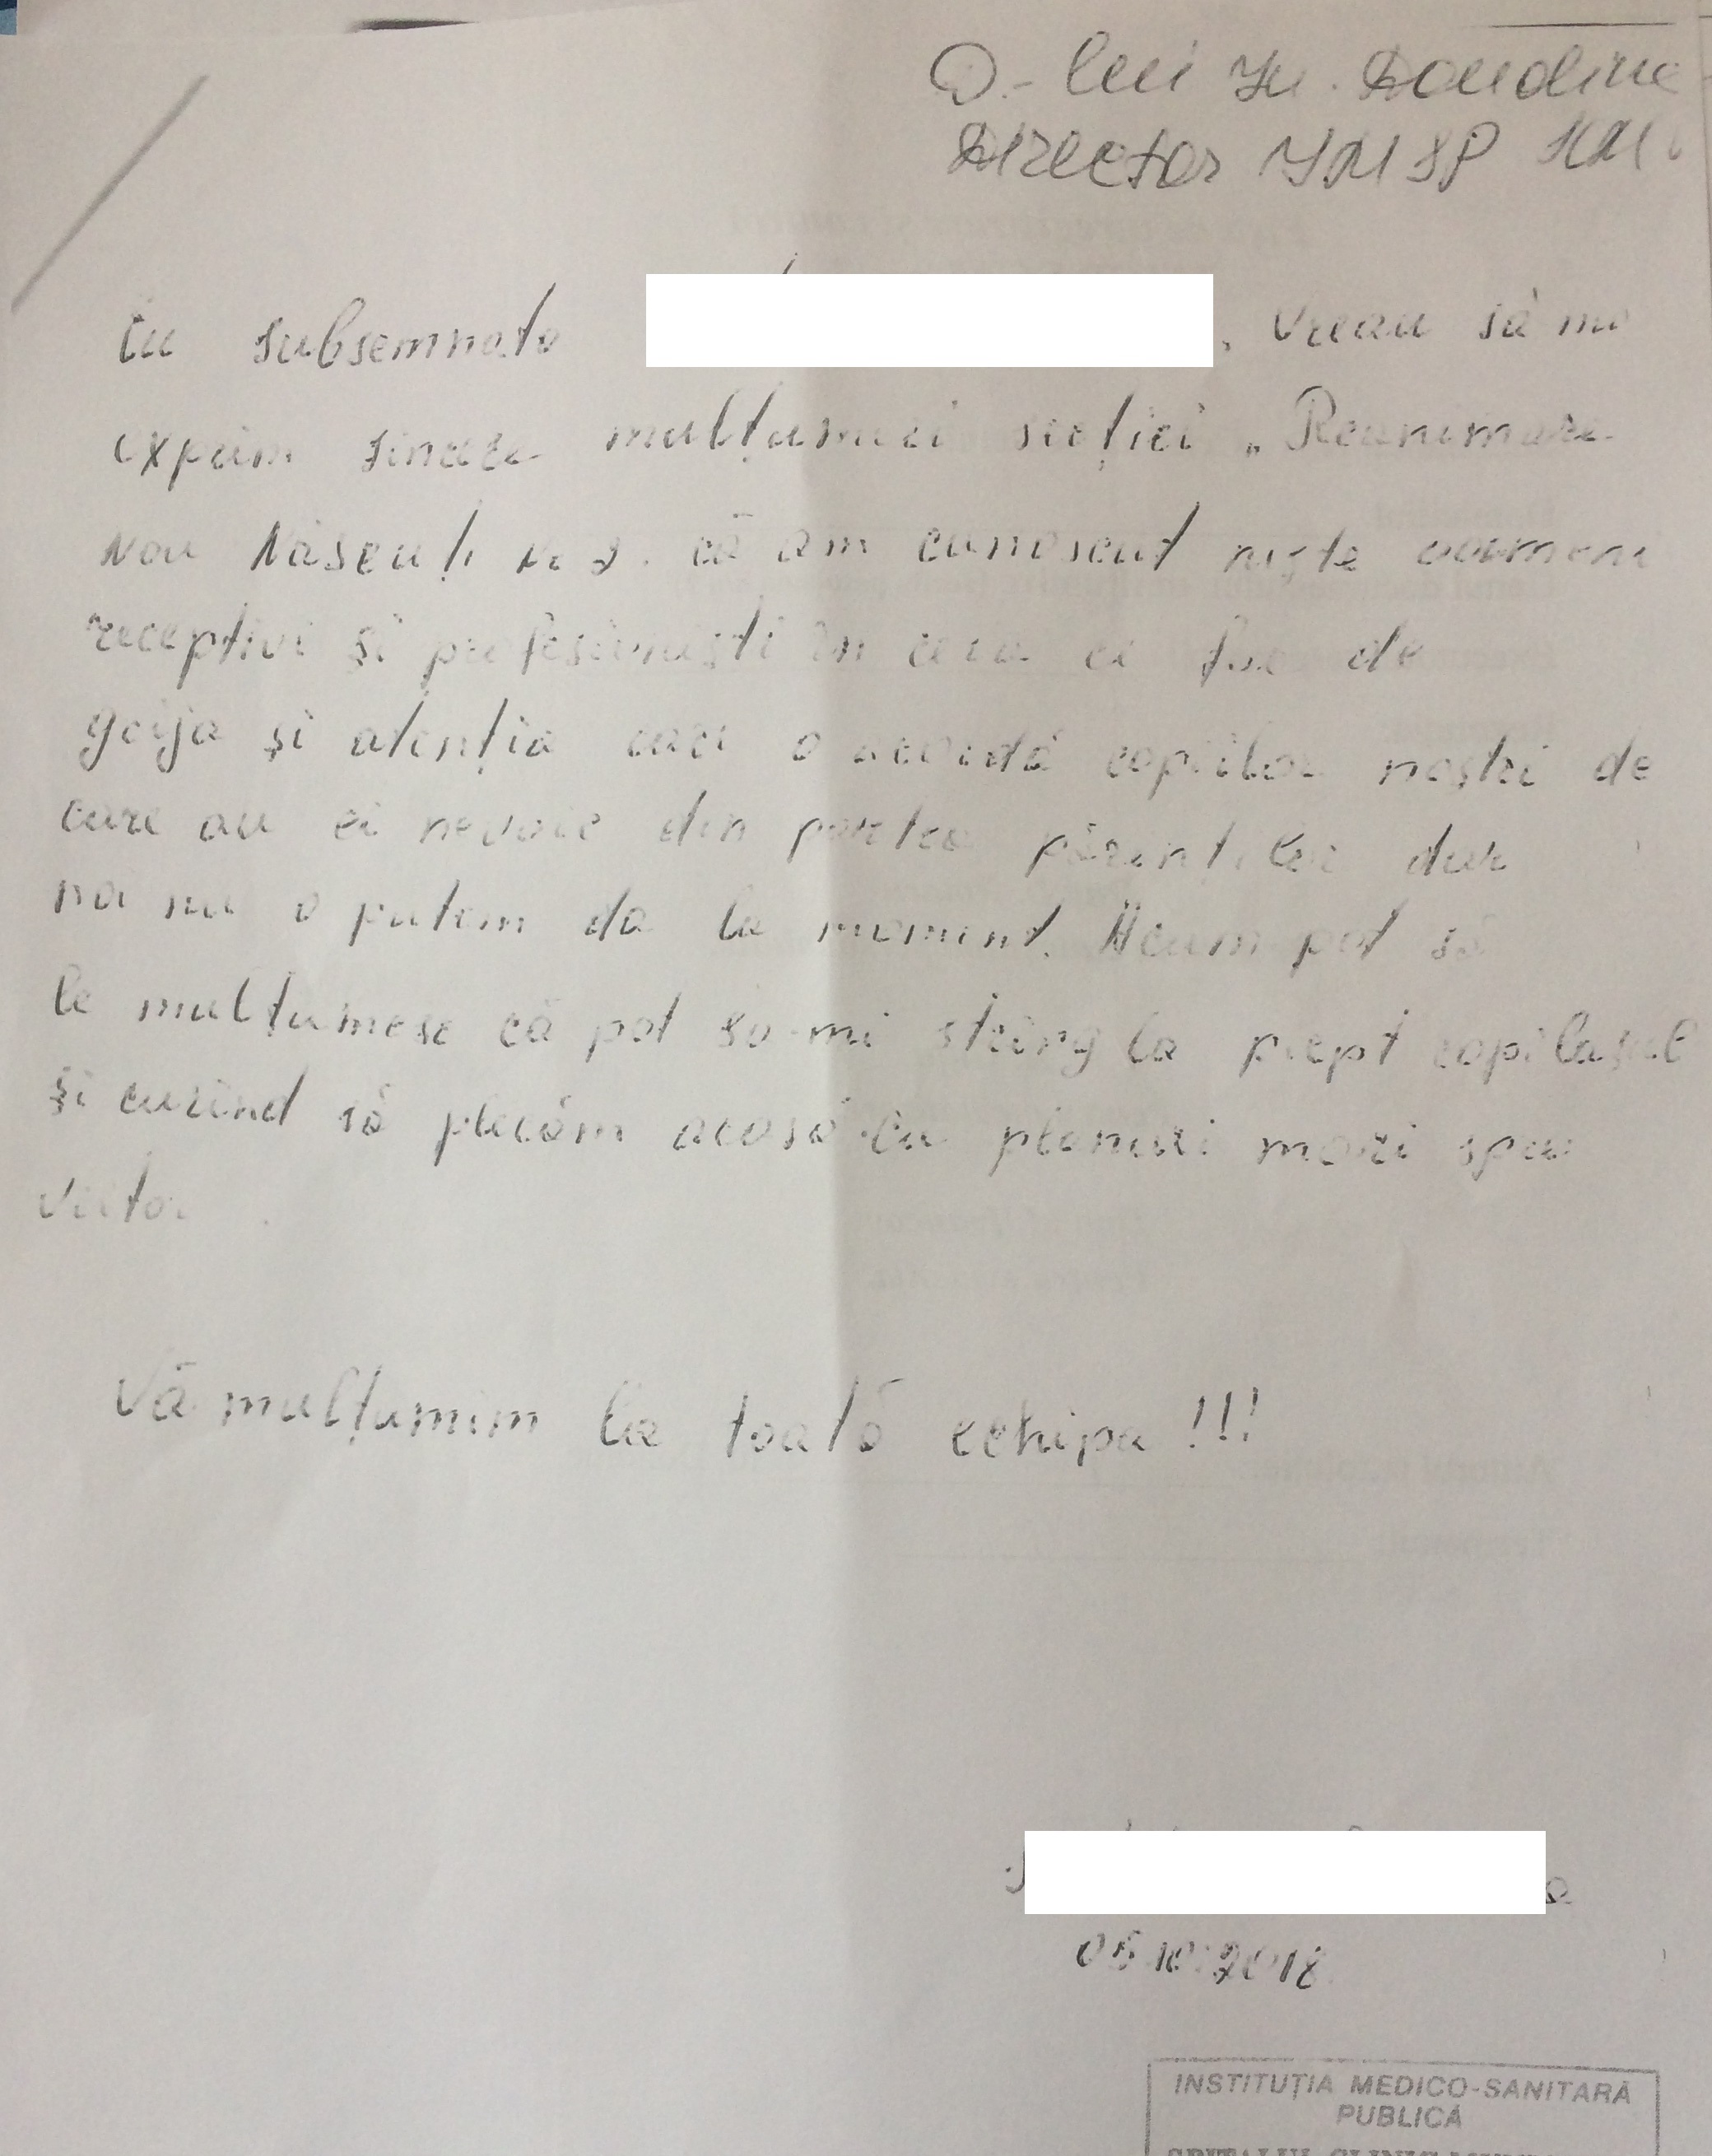 D-lui Iu. Dondiuc
Director IMSP
Eu subsemnata , vreau să mă
exprim sincere mulțumiri secției „Reanimare
Nou Născuți Nr 2. că am cunoscut niște oameni
receptivi și profesioniști în ceea ce fac de
grija și atenția care o acordă copiilor noștri de
care au ei nevoie din partea părinților dar
noi nu o putem da la moment. Acum pot să
le mulțumesc că pot să-mi strîng la piept copilașul
și curînd să plecăm acasă cu planuri mari spre
viitor.
Vă mulțumim la toată echipa !!!
05.10.2018
INSTITUȚIA MEDICO-SANITARĂ
PUBLICĂ